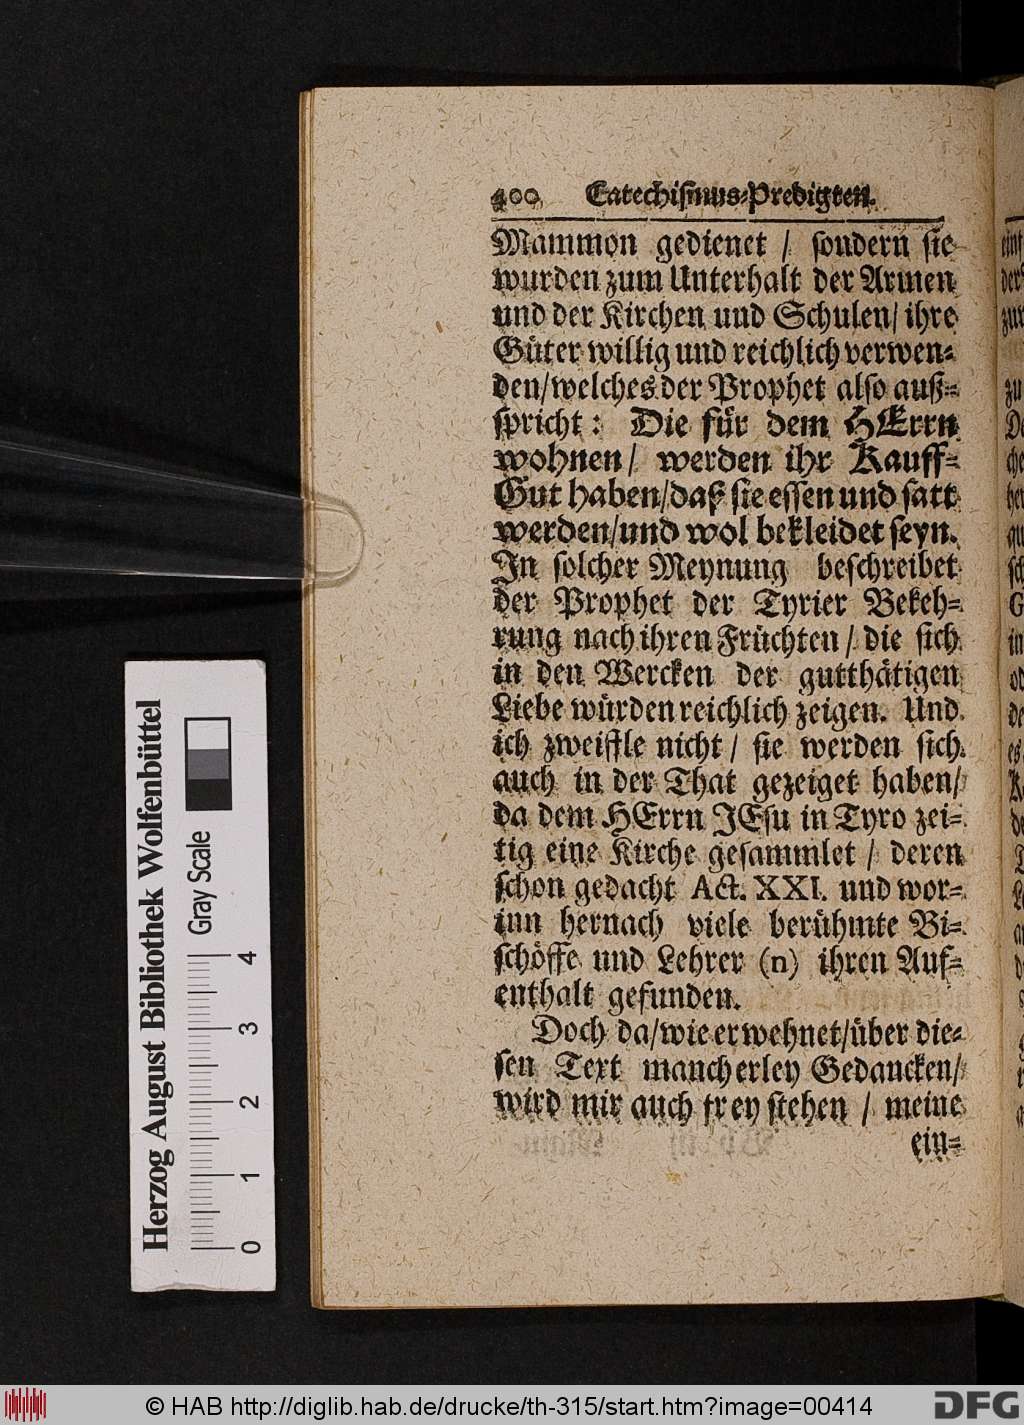 400 Catechismus-Predigten.
Mammon gedienet / sondern sie
wurden zum Unterhalt der Armen
und der Kirchen und Schulen/ ihre
Güter willig und reichlich verwen-
den/welches der Prophet also auß-
spricht: Die für dem HErrn
wohnen/ werden ihr Kauff-
Gut haben/daß sie essen und satt
werden/und wol bekleidet seyn.
In solcher Meynung beschreibet
der Prophet der Tyrier Bekeh-
rung nach ihren Früchten / die sich
in den Wercken der gutthätigen
Liebe würden reichlich zeigen. Und
ich zweiffle nicht / sie werden sich
auch in der That gezeiget haben/
da dem HErrn JEsu in Tyro zei-
tig eine Kirche gesammlet / deren
schon gedacht Act. XXI. und wor-
inn hernach viele berühmte Bi-
schöffe und Lehrer (n) ihren Auf-
enthalt gefunden.
Doch da/wie erwehnet/über die-
sen Text mancherley Gedancken/
wird mir auch frey stehen / meine
ein-
Herzog August Bibliothek Wolfenbüttel
Gray Scale
0 1 2 3 4
© HAB http://diglib.hab.de/drucke/th-315/start.htm?image=00414
DFG